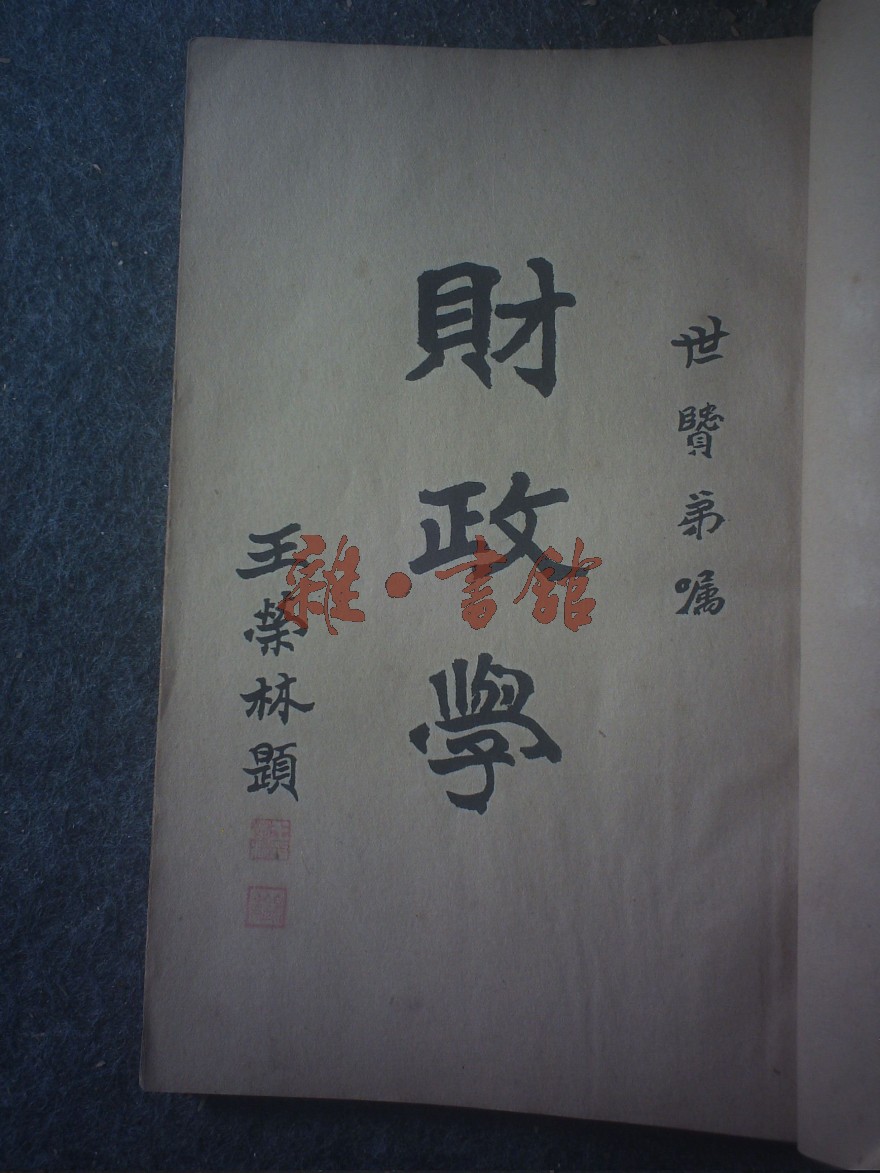 世贒弟嘱
財政學
王榮林題
雜·書館